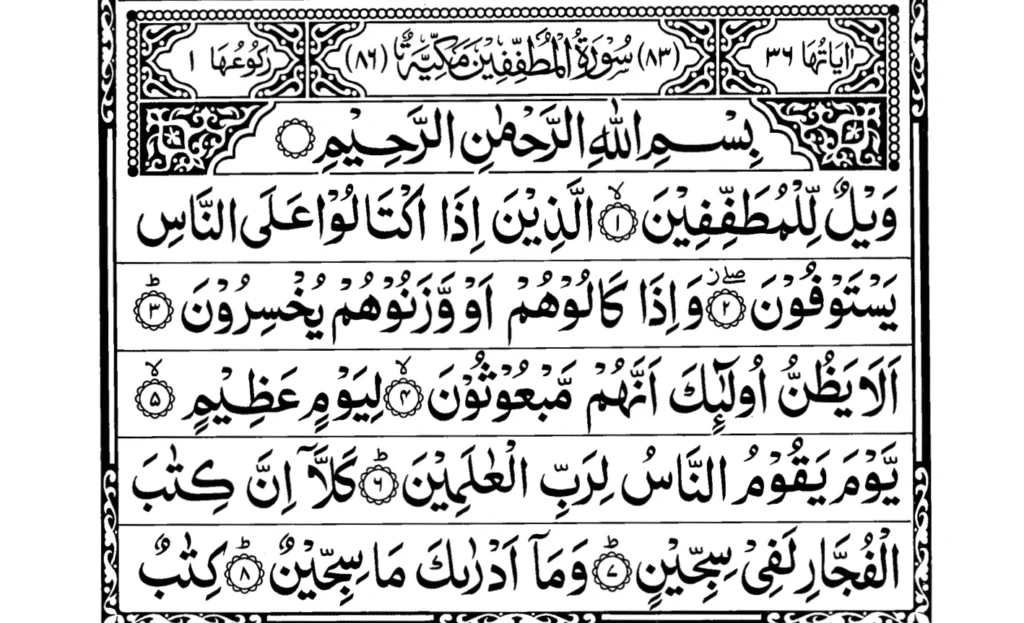 اٰیَاتُهَا ٣٦ (٨٣) سُوْرَةُ الْمُطَفِّفِيْنَ مَكِّيَّةٌ (٨٦) رُكُوْعُهَا ١
بِسْمِ اللّٰهِ الرَّحْمٰنِ الرَّحِيْمِ
وَيْلٌ لِّلْمُطَفِّفِيْنَ ۙ‏﴿١﴾ الَّذِيْنَ اِذَا اكْتَالُوْا عَلَى النَّاسِ
يَسْتَوْفُوْنَ ۖز ﴿٢﴾ وَاِذَا كَالُوْهُمْ اَوْ وَّزَنُوْهُمْ يُخْسِرُوْنَ ؕ ﴿٣﴾
اَلَا يَظُنُّ اُولٰٓئِكَ اَنَّهُمْ مَّبْعُوْثُوْنَ ۙ ﴿٤﴾ لِيَوْمٍ عَظِيْمٍ ۙ ﴿٥﴾
يَّوْمَ يَقُوْمُ النَّاسُ لِرَبِّ الْعٰلَمِيْنَ ؕ ﴿٦﴾ كَلَّاۤ اِنَّ كِتٰبَ
الْفُجَّارِ لَفِيْ سِجِّيْنٍ ؕ ﴿٧﴾ وَمَاۤ اَدْرٰىكَ مَا سِجِّيْنٌ ؕ ﴿٨﴾ كِتٰبٌ